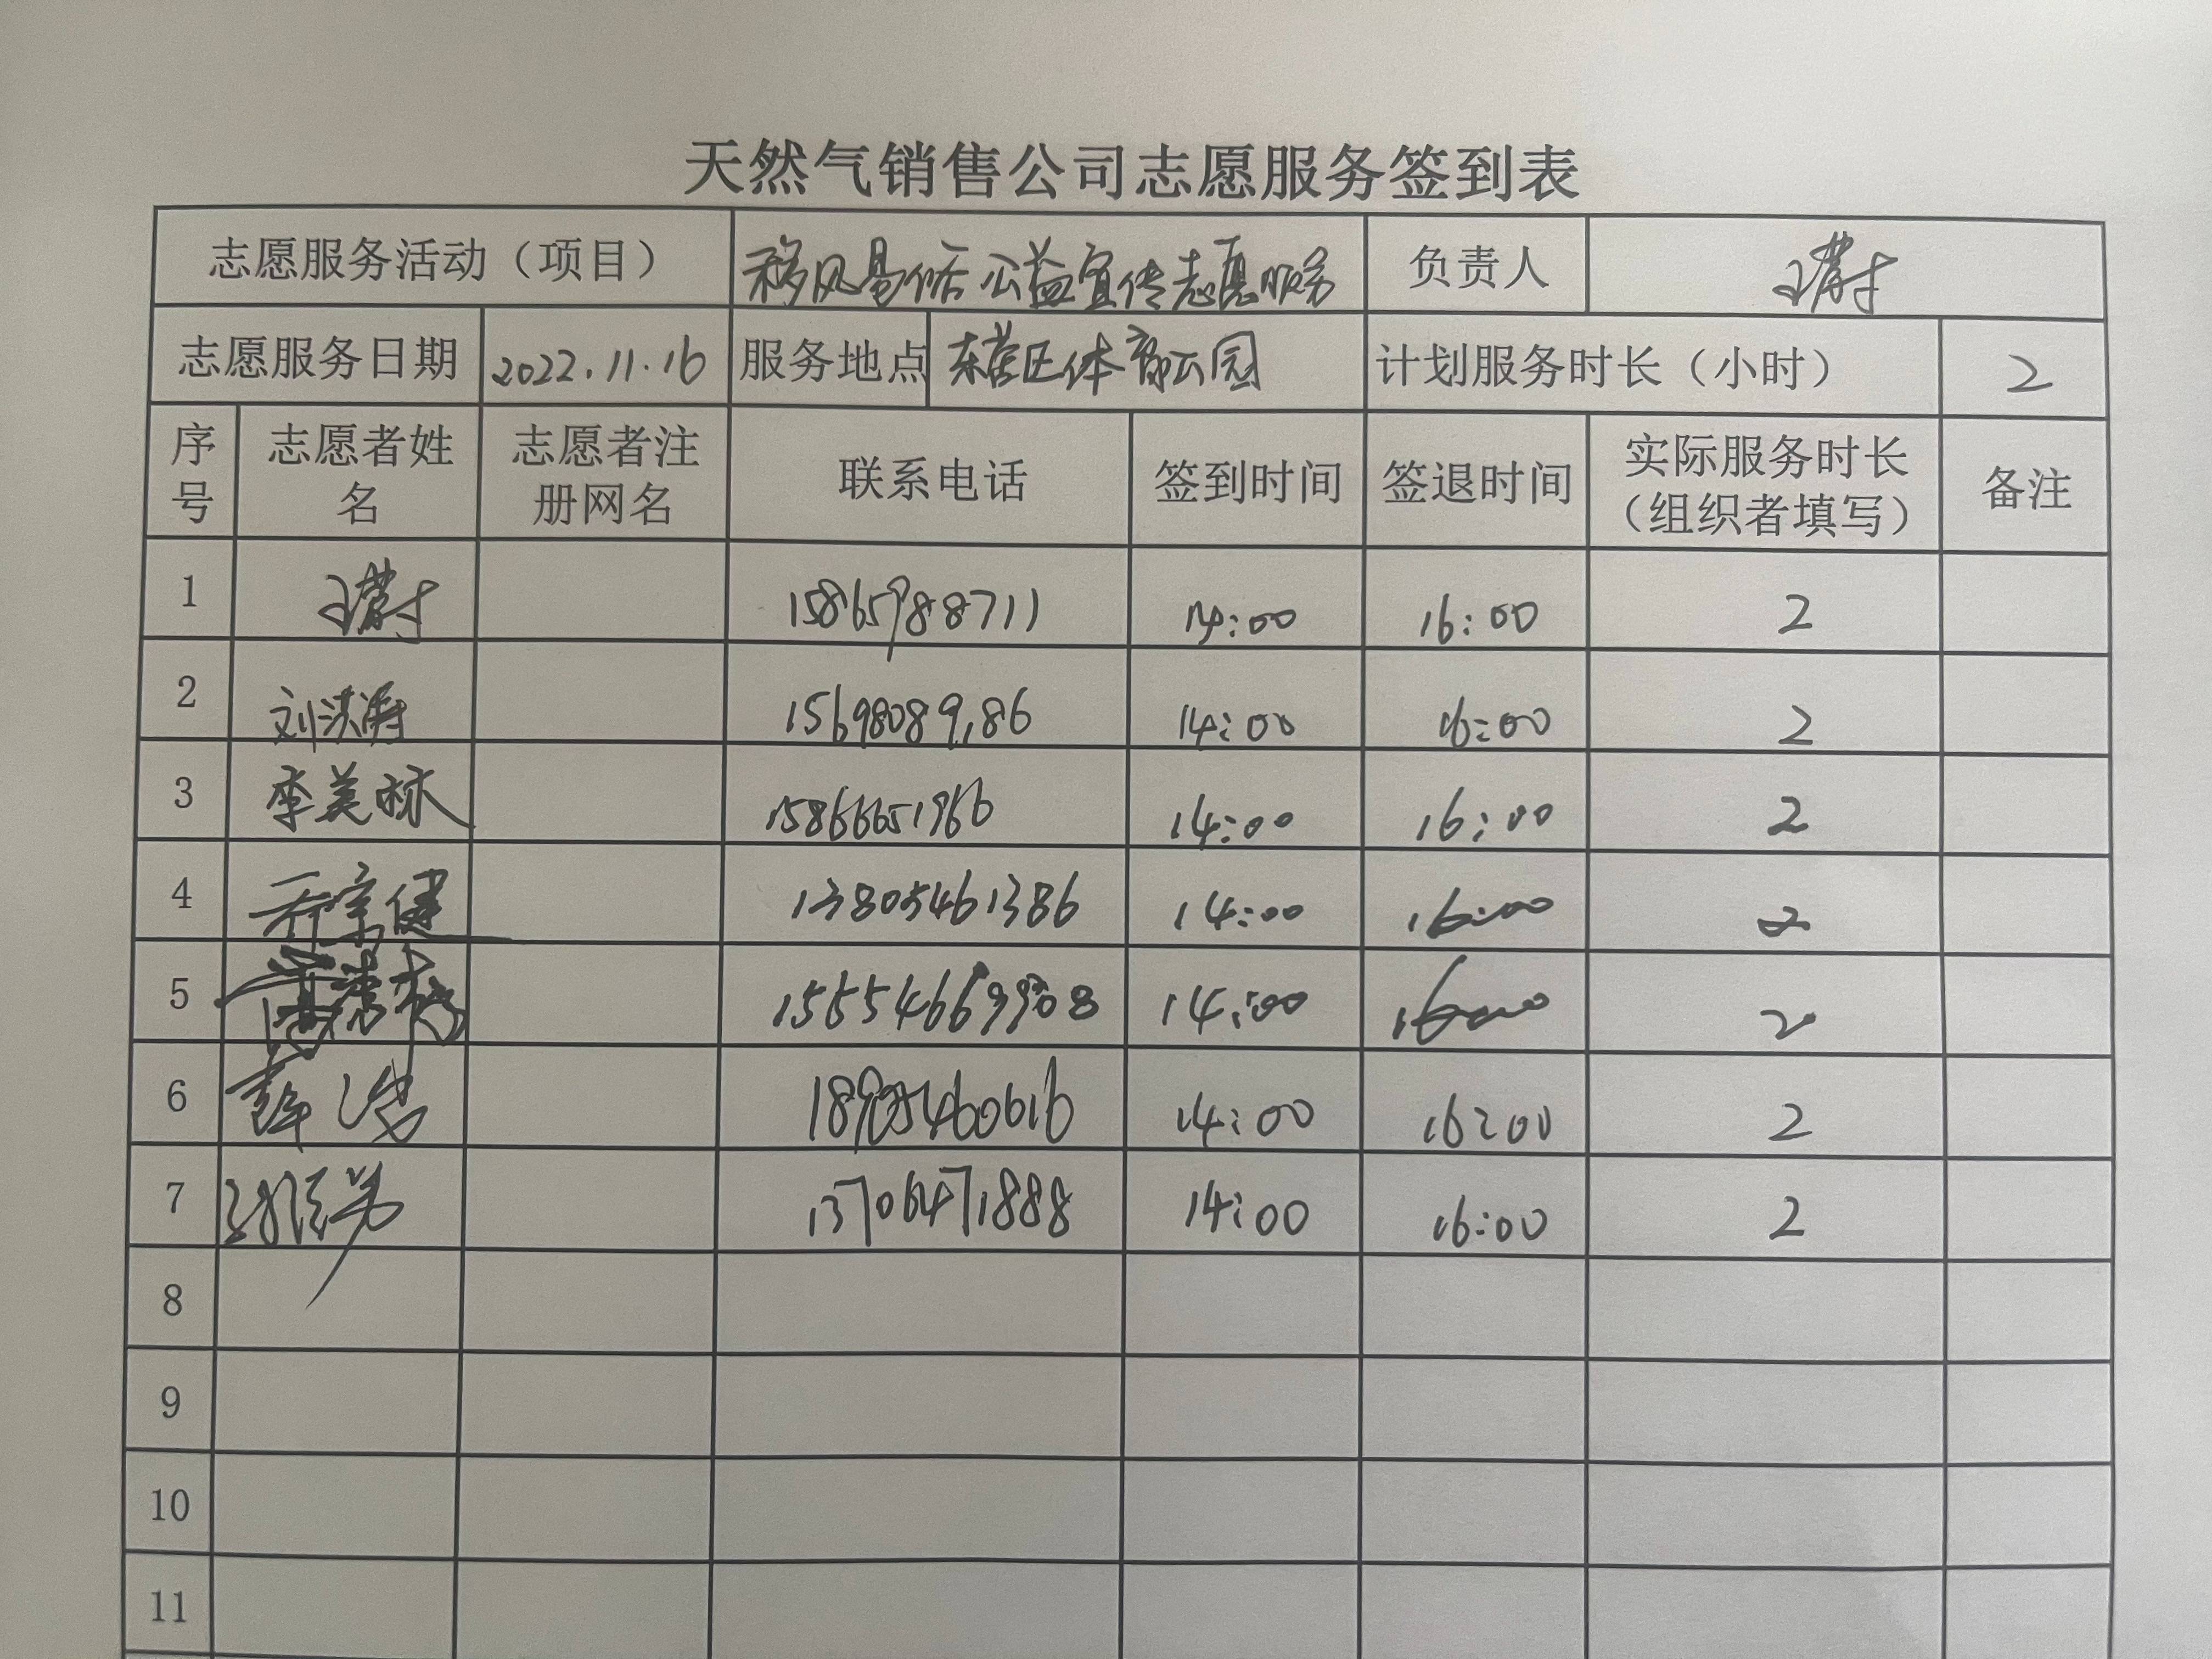 天然气销售公司志愿服务签到表
志愿服务活动（项目） 移风易俗公益宣传志愿服务 负责人 王蔚
志愿服务日期 2022.11.16 服务地点 东营区体育公园 计划服务时长（小时） 2
序号 志愿者姓名 志愿者注册网名 联系电话 签到时间 签退时间 实际服务时长（组织者填写） 备注
1 王蔚 15865988711 14:00 16:00 2
2 刘洪涛 15698089186 14:00 16:00 2
3 李美林 15866651966 14:00 16:00 2
4 乔宗健 13805461386 14:00 16:00 2
5 14:00 16:00 2
6 18905460616 14:00 16:00 2
7 13706471888 14:00 16:00 2
8
9
10
11